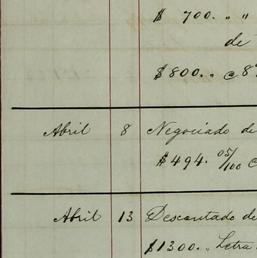 $ 700. " "
de
$800. " @ 8
Abril 8 Negociado de
$494. 05/100 @
Abril 13 Descontado de
$1300. " Letra